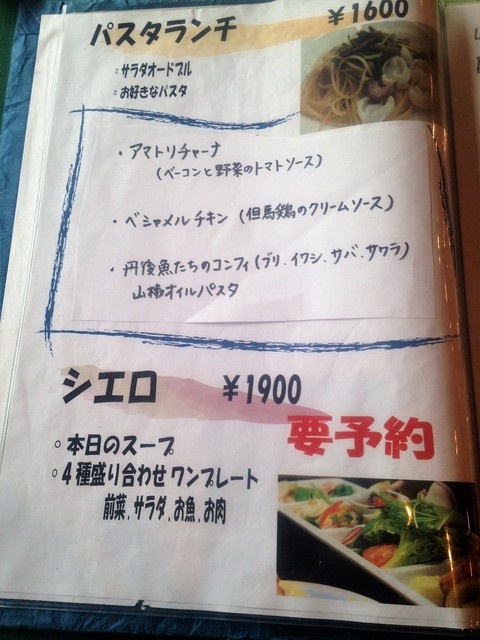 パスタランチ ¥1600
・サラダオードブル
・お好きなパスタ
・アマトリチャーナ
(ベーコンと野菜のトマトソース)
・ベシャメルチキン (但馬鶏のクリームソース)
・丹後魚たちのコンフィ(ブリ、イワシ、サバ、サワラ)
山椒オイルパスタ
シエロ ¥1900
要予約
○本日のスープ
○4種盛り合わせワンプレート
前菜、サラダ、お魚、お肉